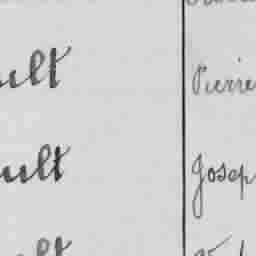 ult Pierre
ult Josep
ult